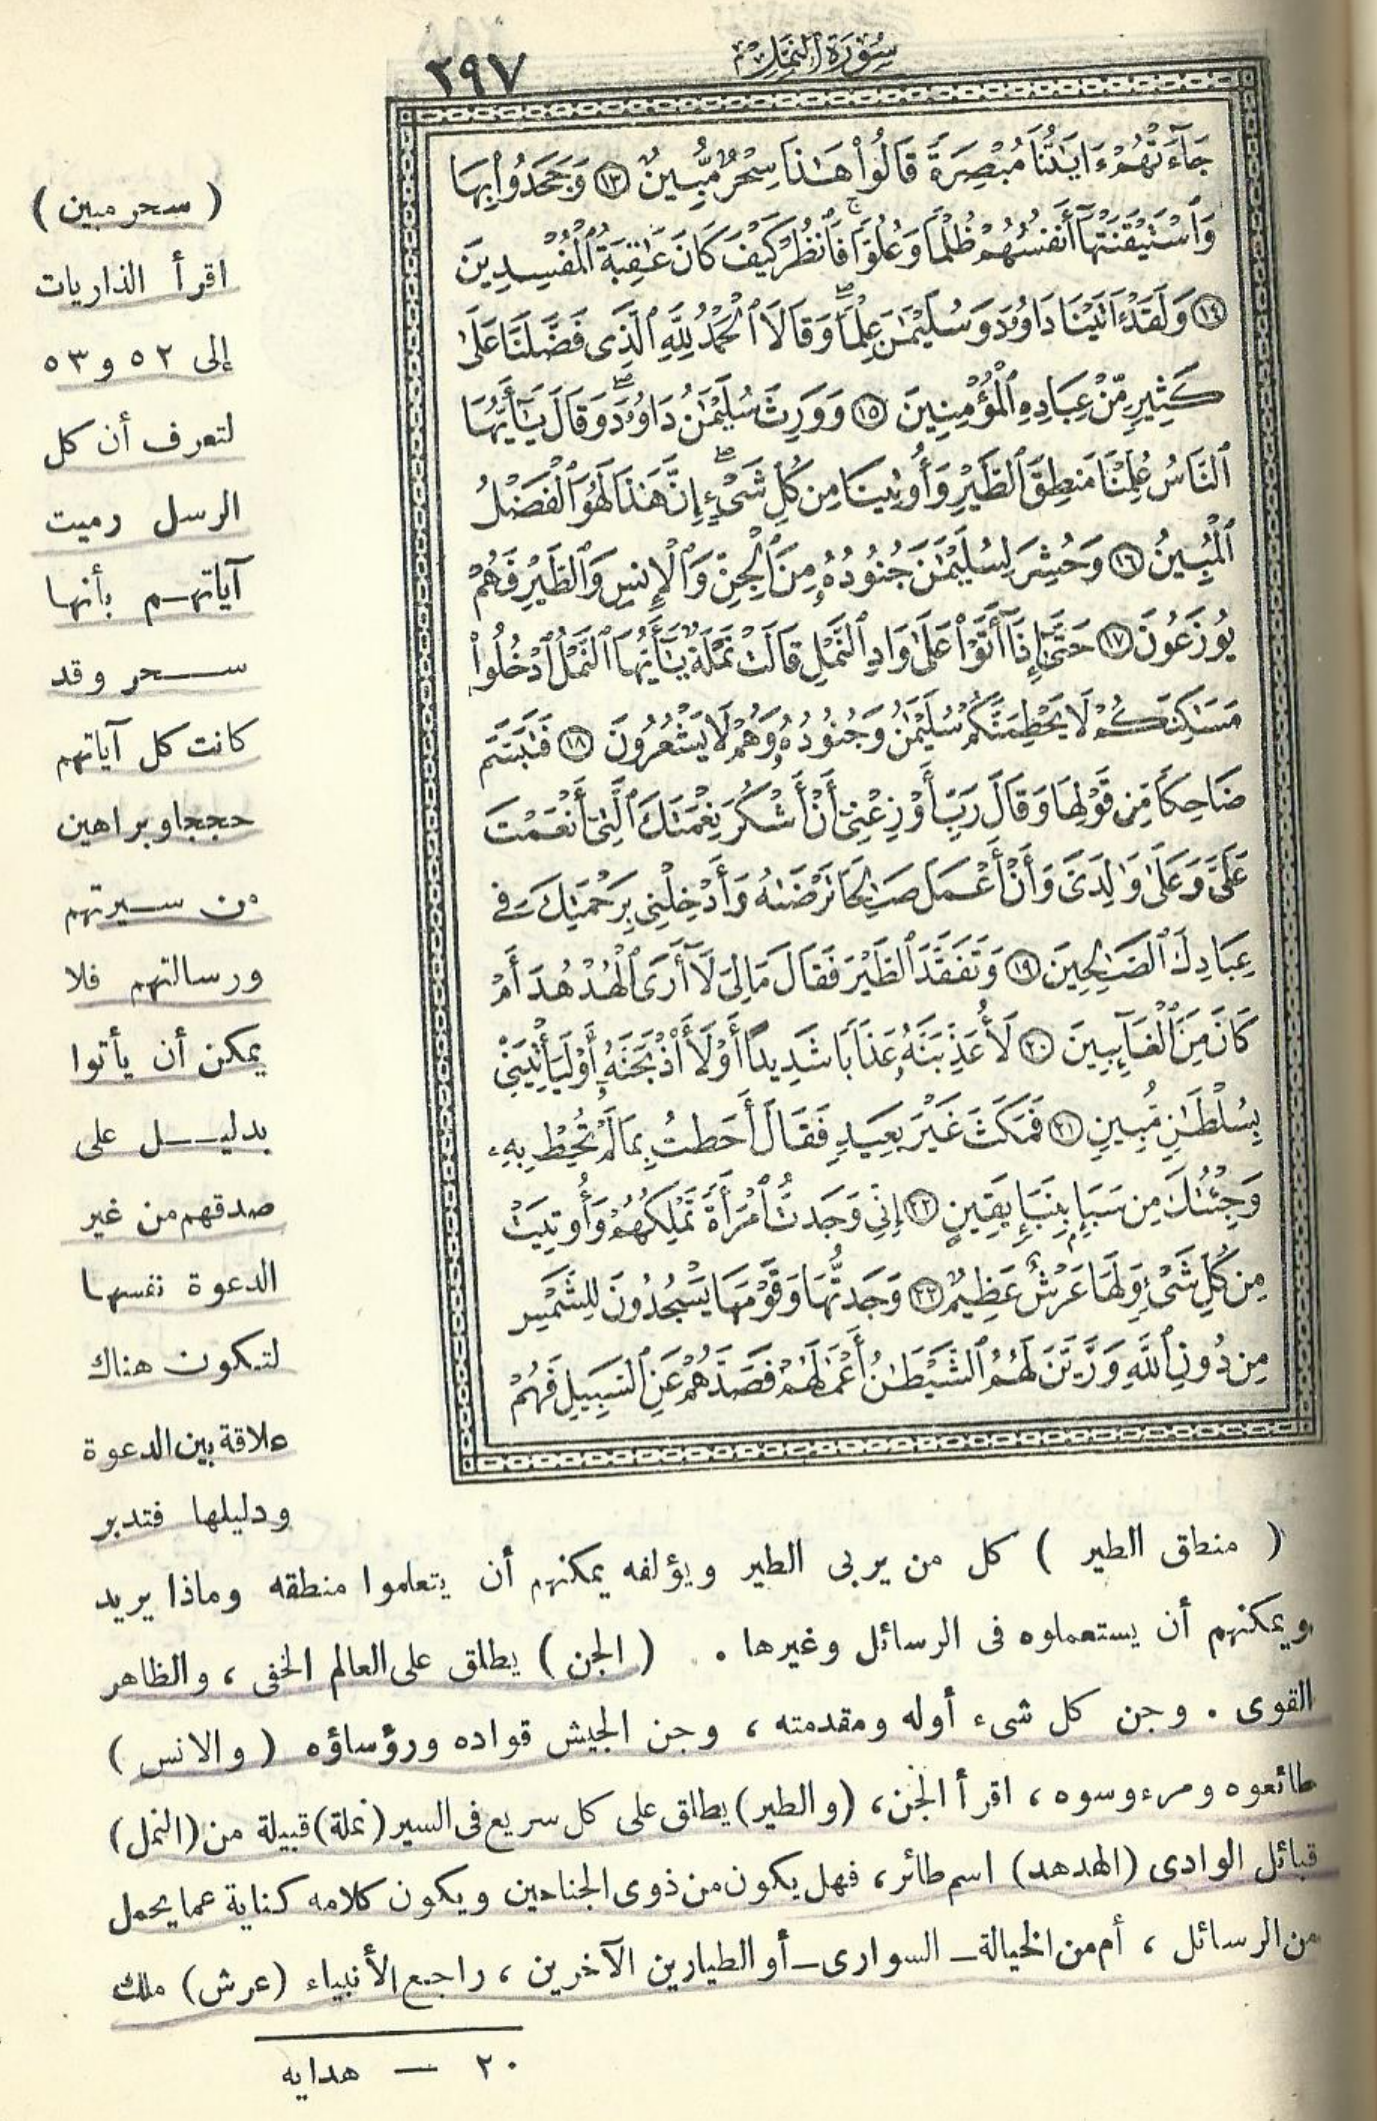 سُورَةُ ٱلنَّمْلِ
٢٩٧
جَآءَتْهُمْ ءَايَٰتُنَا مُبْصِرَةً قَالُوا۟ هَٰذَا سِحْرٌ مُّبِينٌ ١٣ وَجَحَدُوا۟ بِهَا
وَٱسْتَيْقَنَتْهَآ أَنفُسُهُمْ ظُلْمًا وَعُلُوًّا ۚ فَٱنظُرْ كَيْفَ كَانَ عَٰقِبَةُ ٱلْمُفْسِدِينَ
١٤ وَلَقَدْ ءَاتَيْنَا دَاوُۥدَ وَسُلَيْمَٰنَ عِلْمًا ۖ وَقَالَا ٱلْحَمْدُ لِلَّهِ ٱلَّذِى فَضَّلَنَا عَلَىٰ
كَثِيرٍ مِّنْ عِبَادِهِ ٱلْمُؤْمِنِينَ ١٥ وَوَرِثَ سُلَيْمَٰنُ دَاوُۥدَ ۖ وَقَالَ يَٰٓأَيُّهَا
ٱلنَّاسُ عُلِّمْنَا مَنطِقَ ٱلطَّيْرِ وَأُوتِينَا مِن كُلِّ شَىْءٍ ۖ إِنَّ هَٰذَا لَهُوَ ٱلْفَضْلُ
ٱلْمُبِينُ ١٦ وَحُشِرَ لِسُلَيْمَٰنَ جُنُودُهُۥ مِنَ ٱلْجِنِّ وَٱلْإِنسِ وَٱلطَّيْرِ فَهُمْ
يُوزَعُونَ ١٧ حَتَّىٰٓ إِذَآ أَتَوْا۟ عَلَىٰ وَادِ ٱلنَّمْلِ قَالَتْ نَمْلَةٌ يَٰٓأَيُّهَا ٱلنَّمْلُ ٱدْخُلُوا۟
مَسَٰكِنَكُمْ لَا يَحْطِمَنَّكُمْ سُلَيْمَٰنُ وَجُنُودُهُۥ وَهُمْ لَا يَشْعُرُونَ ١٨ فَتَبَسَّمَ
ضَاحِكًا مِّن قَوْلِهَا وَقَالَ رَبِّ أَوْزِعْنِىٓ أَنْ أَشْكُرَ نِعْمَتَكَ ٱلَّتِىٓ أَنْعَمْتَ
عَلَىَّ وَعَلَىٰ وَٰلِدَىَّ وَأَنْ أَعْمَلَ صَٰلِحًا تَرْضَىٰهُ وَأَدْخِلْنِى بِرَحْمَتِكَ فِى
عِبَادِكَ ٱلصَّٰلِحِينَ ١٩ وَتَفَقَّدَ ٱلطَّيْرَ فَقَالَ مَا لِىَ لَآ أَرَى ٱلْهُدْهُدَ أَمْ
كَانَ مِنَ ٱلْغَآئِبِينَ ٢٠ لَأُعَذِّبَنَّهُۥ عَذَابًا شَدِيدًا أَوْ لَأَا۟ذْبَحَنَّهُۥٓ أَوْ لَيَأْتِيَنِّى
بِسُلْطَٰنٍ مُّبِينٍ ٢١ فَمَكَثَ غَيْرَ بَعِيدٍ فَقَالَ أَحَطتُ بِمَا لَمْ تُحِطْ بِهِۦ
وَجِئْتُكَ مِن سَبَإٍۭ بِنَبَإٍ يَقِينٍ ٢٢ إِنِّى وَجَدتُّ ٱمْرَأَةً تَمْلِكُهُمْ وَأُوتِيَتْ
مِن كُلِّ شَىْءٍ وَلَهَا عَرْشٌ عَظِيمٌ ٢٣ وَجَدتُّهَا وَقَوْمَهَا يَسْجُدُونَ لِلشَّمْسِ
مِن دُونِ ٱللَّهِ وَزَيَّنَ لَهُمُ ٱلشَّيْطَٰنُ أَعْمَٰلَهُمْ فَصَدَّهُمْ عَنِ ٱلسَّبِيلِ فَهُمْ
( سحر مبين )
اقرأ الذاريات
إلى ٥٢ و ٥٣
لتعرف أن كل
الرسل رميت
آياتهم بأنها
سحر وقد
كانت كل آياتهم
حججا وبراهين
من سيرتهم
ورسالتهم فلا
يمكن أن يأتوا
بدليل على
صدقهم من غير
الدعوة نفسها
لتكون هناك
علاقة بين الدعوة
ودليلها فتدبر
( منطق الطير ) كل من يربى الطير ويؤلفه يمكنهم أن يتعلموا منطقه وماذا يريد
ويمكنهم أن يستعملوه فى الرسائل وغيرها . ( الجن ) يطلق على العالم الخفى ، والظاهر
القوى . وجن كل شىء أوله ومقدمته ، وجن الجيش قواده ورؤساؤه ( والانس )
طائعوه ومرءوسوه ، اقرأ الجن ، (والطير) يطلق على كل سريع فى السير (نملة) قبيلة من (النمل)
قبائل الوادى (الهدهد) اسم طائر ، فهل يكون من ذوى الجناحين ويكون كلامه كناية عما يحمل
من الرسائل ، أم من الخيالة - السوارى - أو الطيارين الآخرين ، راجع الأنبياء (عرش) ملك
٢٠ — هدايه